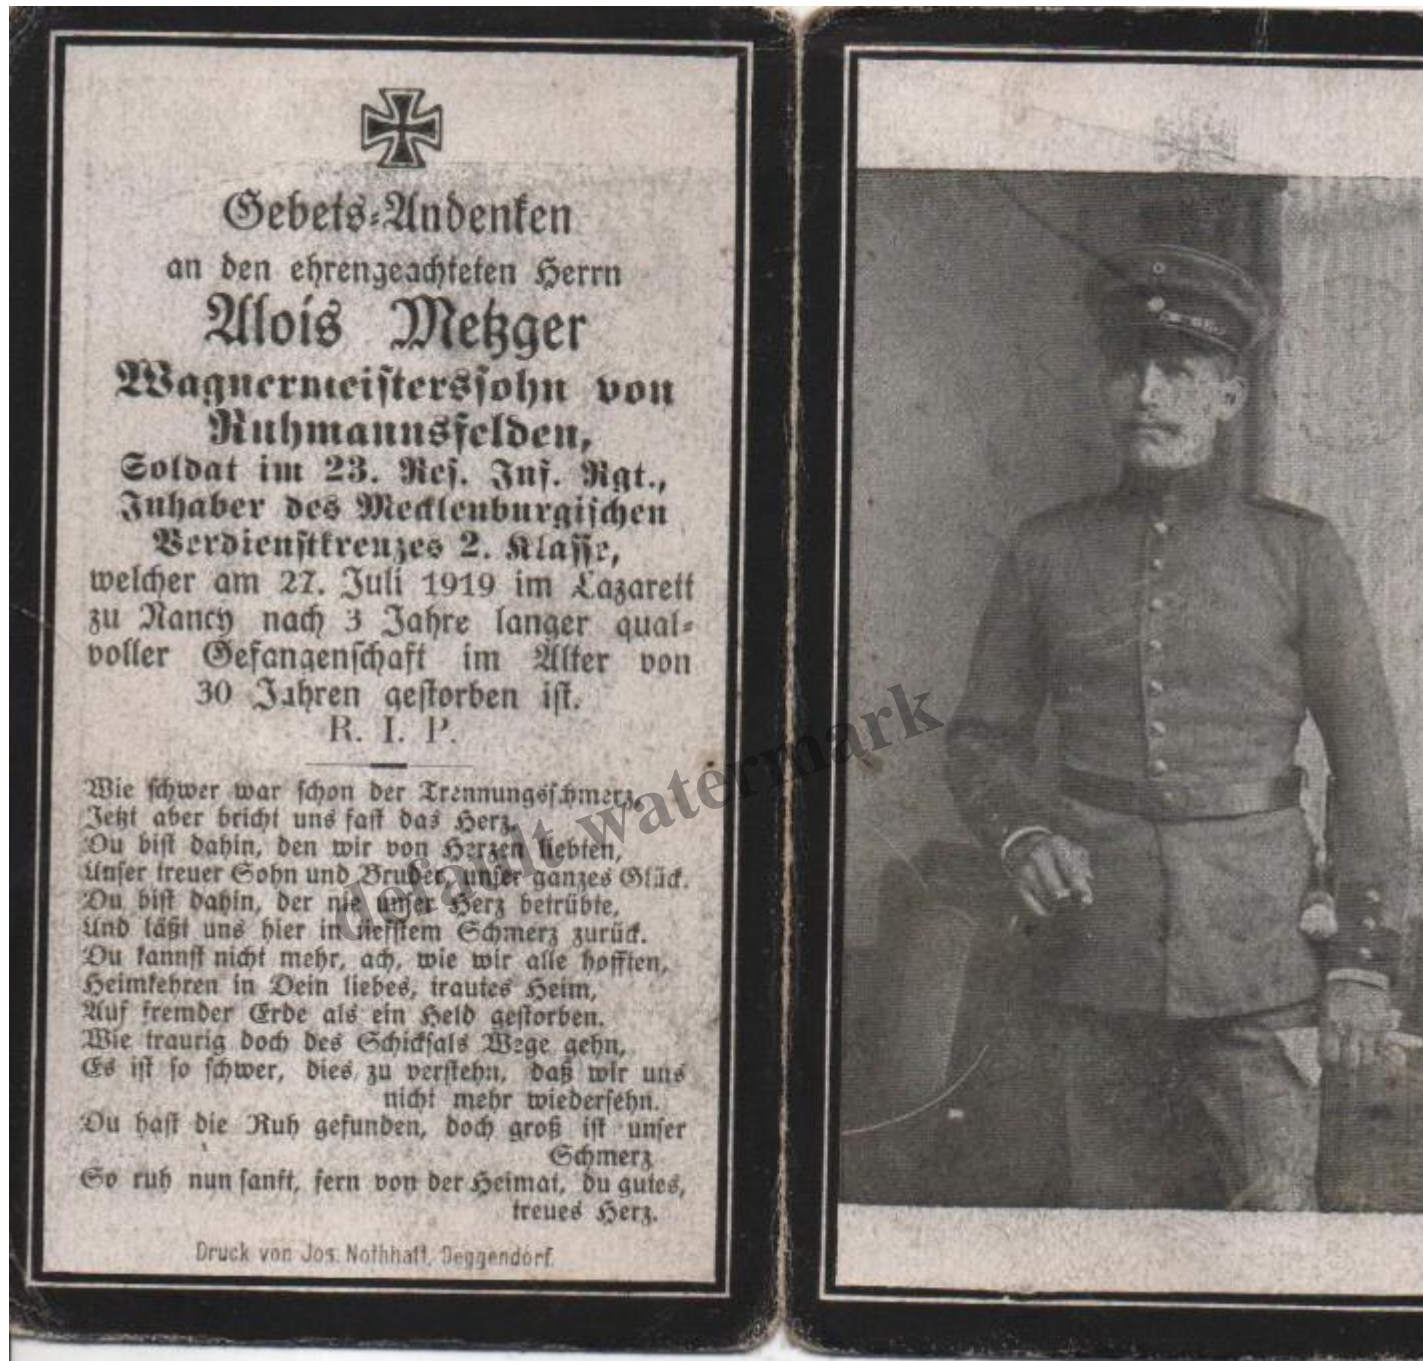 Gebets-Andenken
an den ehrengeachteten Herrn
Alois Metzger
Wagnermeisterssohn von
Ruhmannsfelden,
Soldat im 23. Res. Inf. Rgt.,
Inhaber des Mecklenburgischen
Verdienstkreuzes 2. Klasse,
welcher am 27. Juli 1919 im Lazarett
zu Nancy nach 3 Jahre langer qual-
voller Gefangenschaft im Alter von
30 Jahren gestorben ist.
R. I. P.
Wie schwer war schon der Trennungsschmerz,
Jetzt aber bricht uns fast das Herz.
Du bist dahin, den wir von Herzen liebten,
Unser treuer Sohn und Bruder, unser ganzes Glück.
Du bist dahin, der nie unser Herz betrübte,
Und läßt uns hier in tiefstem Schmerz zurück.
Du kannst nicht mehr, ach, wie wir alle hofften,
Heimkehren in Dein liebes, trautes Heim,
Auf fremder Erde als ein Held gestorben.
Wie traurig doch des Schicksals Wege gehn,
Es ist so schwer, dies zu verstehn, daß wir uns
nicht mehr wiedersehn.
Du hast die Ruh gefunden, doch groß ist unser
Schmerz
So ruh nun sanft, fern von der Heimat, du gutes,
treues Herz.
Druck von Jos. Nothhaft, Deggendorf.
default watermark